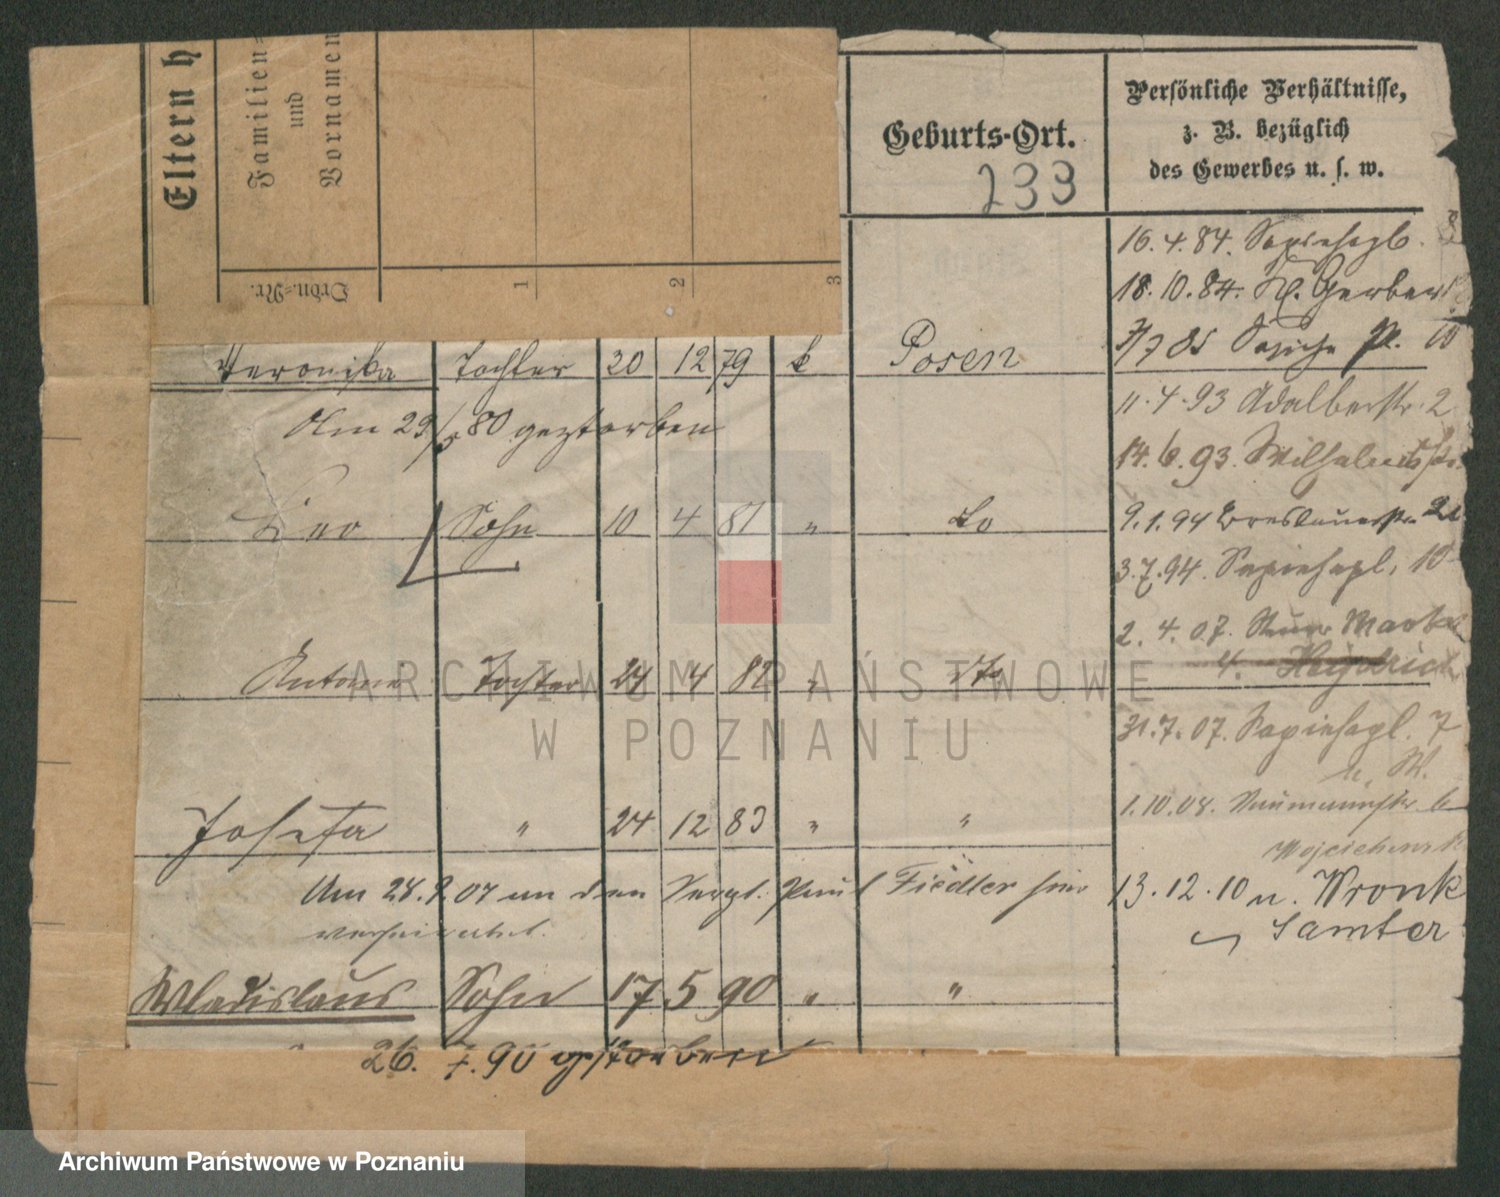 Eltern h
Familien-
und
Vornamen
Ordn.-Nr.
1
2
3
Geburts-Ort.
233
Persönliche Verhältnisse,
z. B. bezüglich
des Gewerbes u. s. w.
16.4.84. Sapiehapl.
18.10.84. Kl. Gerber
3/7 85 Pl. 10
Veronika Tochter 20 12 79 k Posen
11.4.93 Adalbertstr. 2
Am 29/5 80 gestorben
14.6.93. Wilhelmstr.
Leo Sohn 10 4 81 " do
9.1.94 Breslauerstr.
3.7.94. Sapiehapl. 10
2.4.07.
4. Heydrich
Antonie Tochter 24 4 82 " dto
31.7.07. Sapiehapl. 7
b. W.
1.10.08. Naumannstr. 6
Josefa " 24 12 83 " "
Wojciehowsk
Am 28.9.07 an den Sergt. Paul Fiedler hier
verheirathet.
13.12.10 n. Wronk
Samter
Wladislaus Sohn 17 5 90 " "
26. 7. 90 gestorben
ARCHIWUM PAŃSTWOWE
W POZNANIU
Archiwum Państwowe w Poznaniu